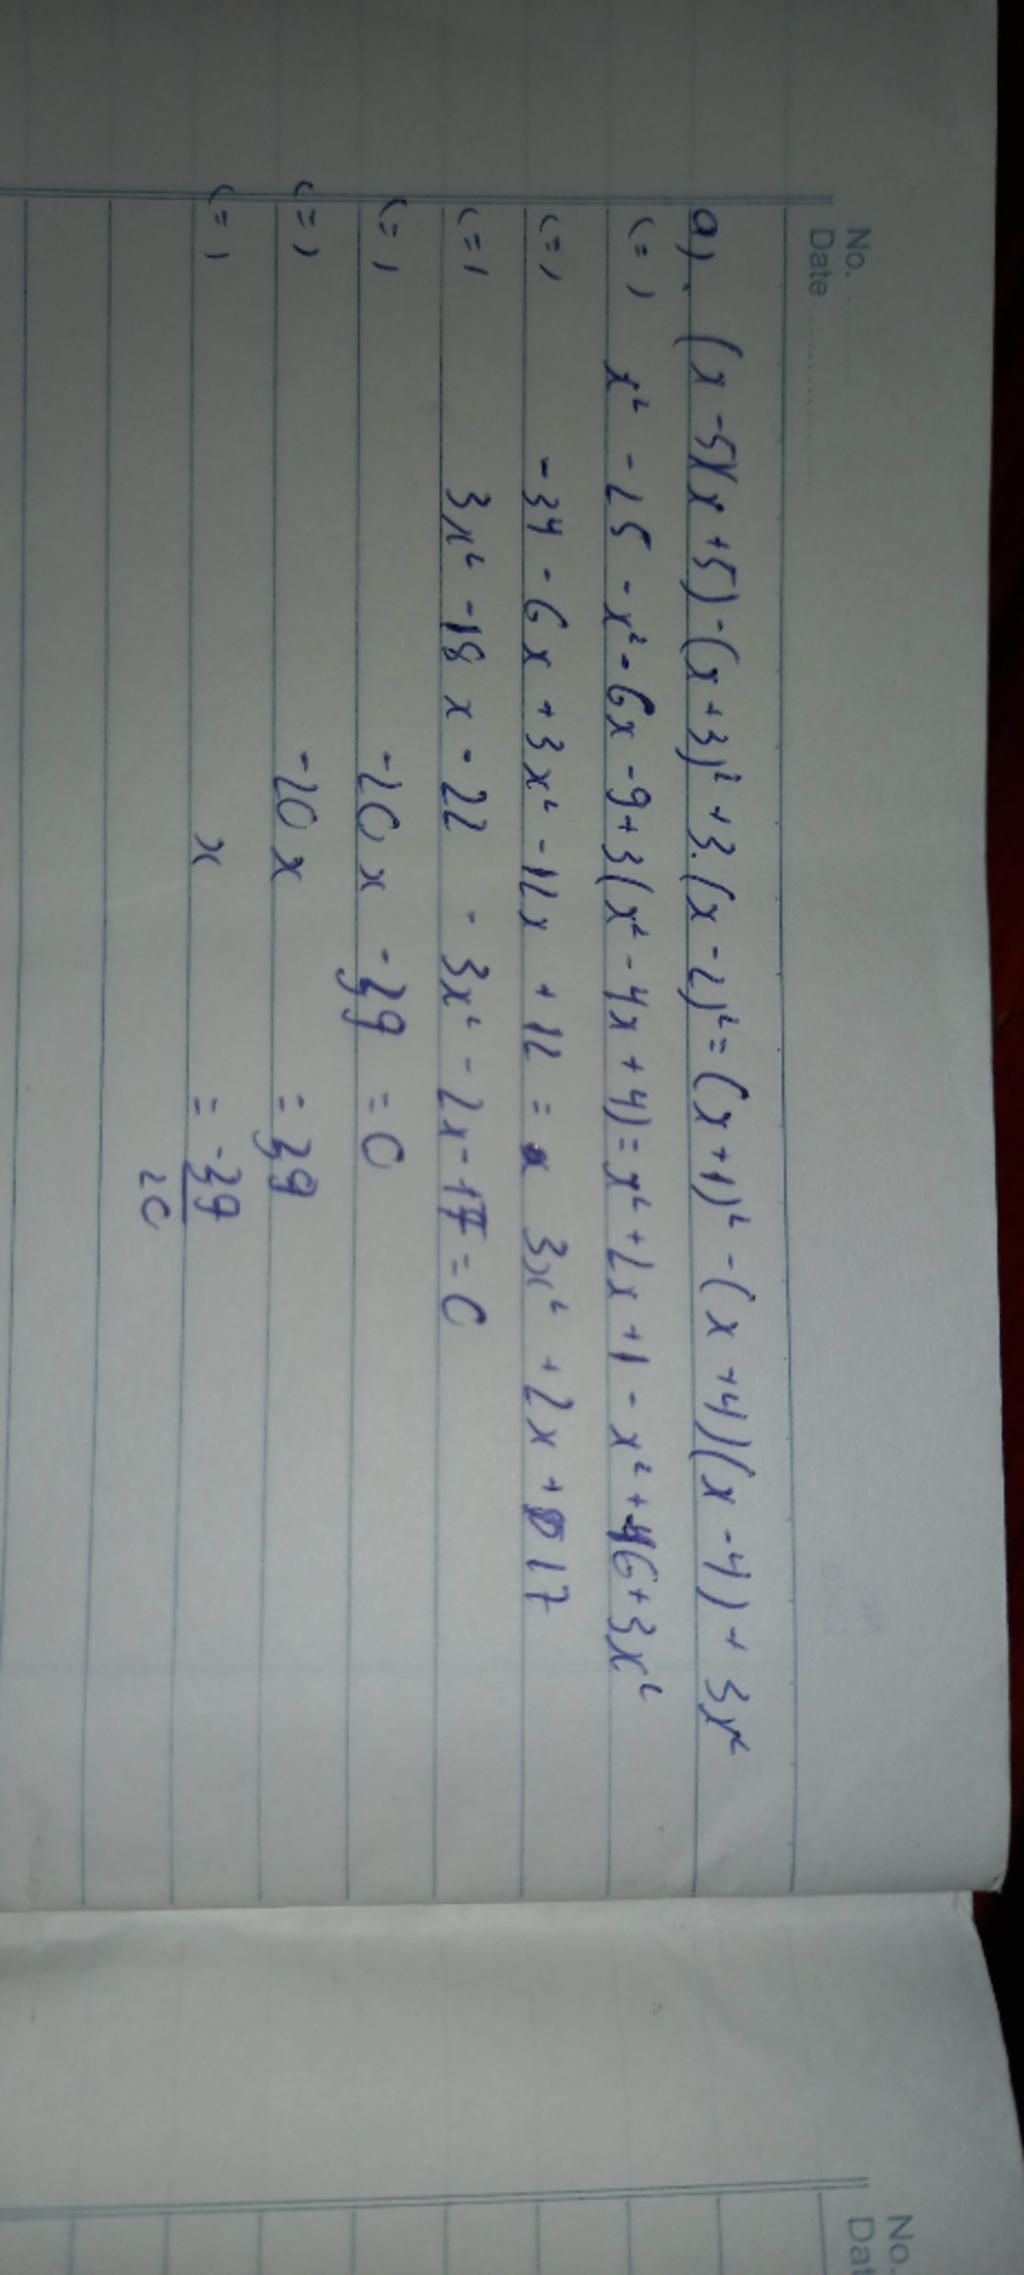 No.
Date
a). (x -5)(x +5) - (x +3)² +3.(x -2)² = (x +1)² - (x +4)(x -4) + 3x²
(=) x² - 25 - x² - 6x - 9 + 3(x² - 4x + 4) = x² + 2x + 1 - x² + 16 + 3x²
(=) -34 - 6x + 3x² - 12x + 12 = 3x² + 2x + 17
(=) 3x² - 18x - 22 - 3x² - 2x - 17 = 0
(=) -20x - 39 = 0
(=) -20x = 39
(=) x = -39/20
No.
Dat